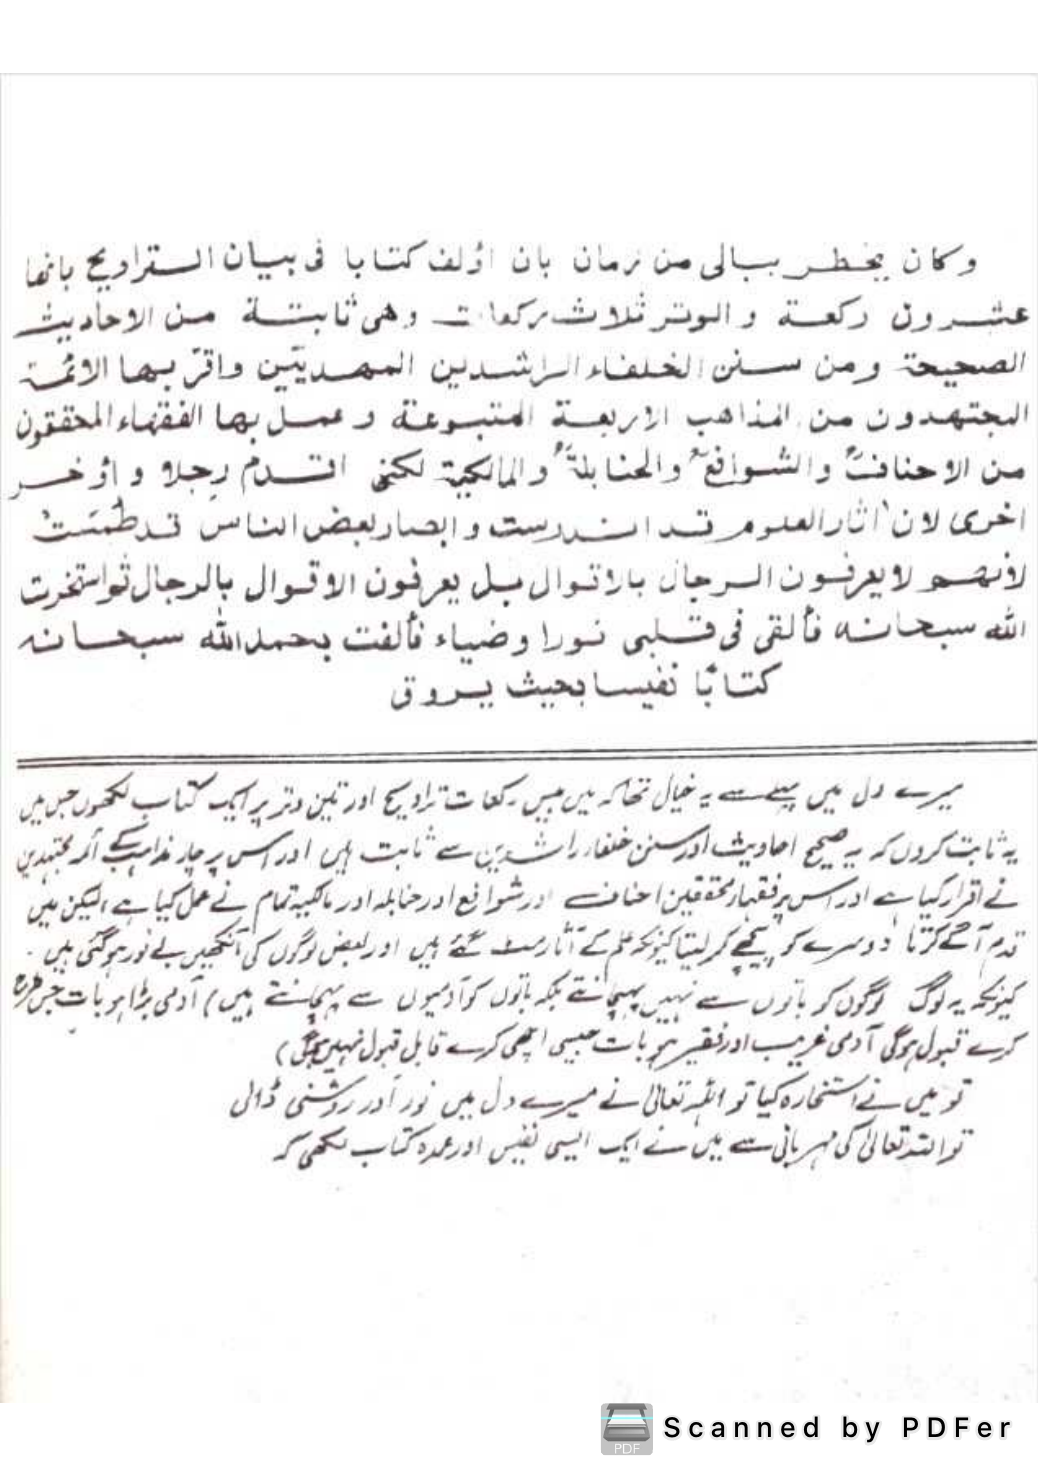 وكان يخطر ببالى من زمان بان اؤلف كتابا فى بيان التراويح بانها
عشرون ركعة و الوتر ثلاث ركعات وهى ثابتة من الاحاديث
الصحيحة ومن سنن الخلفاء الراشدين المهديّين واقرّ بها الائمّة
المجتهدون من المذاهب الاربعة المتبوعة وعمل بها الفقهاء المحققون
من الاحناف والشوافع والحنابلة والمالكية لكنى اقدم رجلا واؤخر
اخرى لان اثار العلوم قد اندرست وابصار بعض الناس قد طمست
لانهم لا يعرفون الرجال بالاقوال بل يعرفون الاقوال بالرجال ثم استخرت
الله سبحانه فألقى فى قلبى نورا وضياء فألفت بحمد الله سبحانه
كتابًا نفيسا بحيث يروق
میرے دل میں پہلے سے یہ خیال تھا کہ میں بیس رکعات تراویح اور تین وتر پر ایک کتاب لکھوں جس میں
یہ ثابت کروں کہ یہ صحیح احادیث اور سنن خلفاء راشدین سے ثابت ہیں اور اس پر چار مذاہب کے ائمہ مجتہدین
نے اقرار کیا ہے اور اس پر فقہاء محققین احناف اور شوافع اور حنابلہ اور مالکیہ تمام نے عمل کیا ہے، لیکن میں
قدم آگے کرتا دوسرے کو پیچھے کر لیتا کیونکہ علم کے آثار مٹ گئے ہیں اور بعض لوگوں کی آنکھیں بے نور ہو گئی ہیں۔
کیونکہ یہ لوگ لوگوں کو باتوں سے نہیں پہچانتے بلکہ باتوں کو آدمیوں سے پہچانتے ہیں) آدمی بڑا ہو بات جس طرح
کرے قبول ہوگی آدمی غریب اور فقیر ہو بات جیسی اچھی کرے قابل قبول نہیں ہوگی)
تو میں نے استخارہ کیا تو اللہ تعالیٰ نے میرے دل میں نور اور روشنی ڈالی
تو اللہ تعالیٰ کی مہربانی سے میں نے ایک ایسی نفیس اور عمدہ کتاب لکھی کہ
PDF
Scanned by PDFer